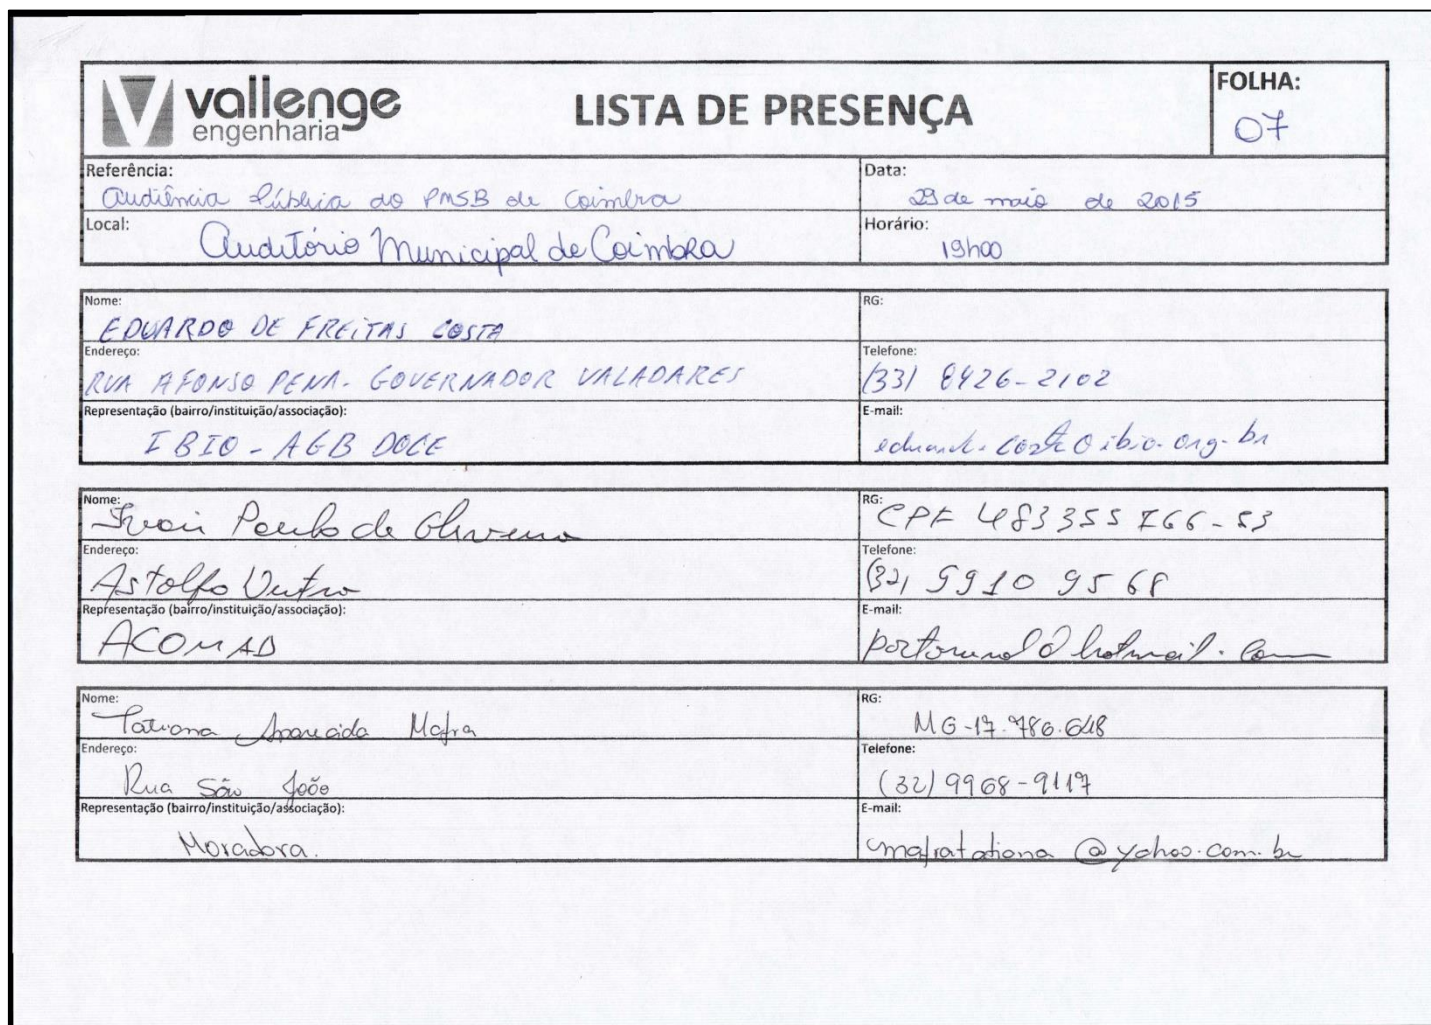 vallenge
engenharia
LISTA DE PRESENÇA
FOLHA:
07
Referência:
Audiência Pública do PMSB de Coimbra
Data:
29 de maio de 2015
Local:
Auditório Municipal de Coimbra
Horário:
19h00
Nome:
EDUARDO DE FREITAS COSTA
RG:
Endereço:
RUA AFONSO PENA. GOVERNADOR VALADARES
Telefone:
(33) 8426-2102
Representação (bairro/instituição/associação):
IBIO - AGB DOCE
E-mail:
eduardo.costa@ibio.org.br
Nome:
Paulo de Oliveira
RG:
CPF 483355766-53
Endereço:
Astolfo Dutra
Telefone:
(32) 9910 9568
Representação (bairro/instituição/associação):
ACOMAD
E-mail:
hotmail.com
Nome:
Tatiana Aparecida Mafra
RG:
MG-17.786.648
Endereço:
Rua São João
Telefone:
(32) 9968-9117
Representação (bairro/instituição/associação):
Moradora.
E-mail:
mafratatiana@yahoo.com.br